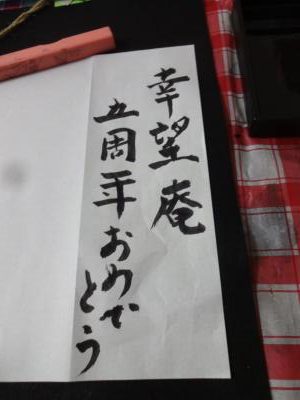 幸望庵
五周年おめでとう